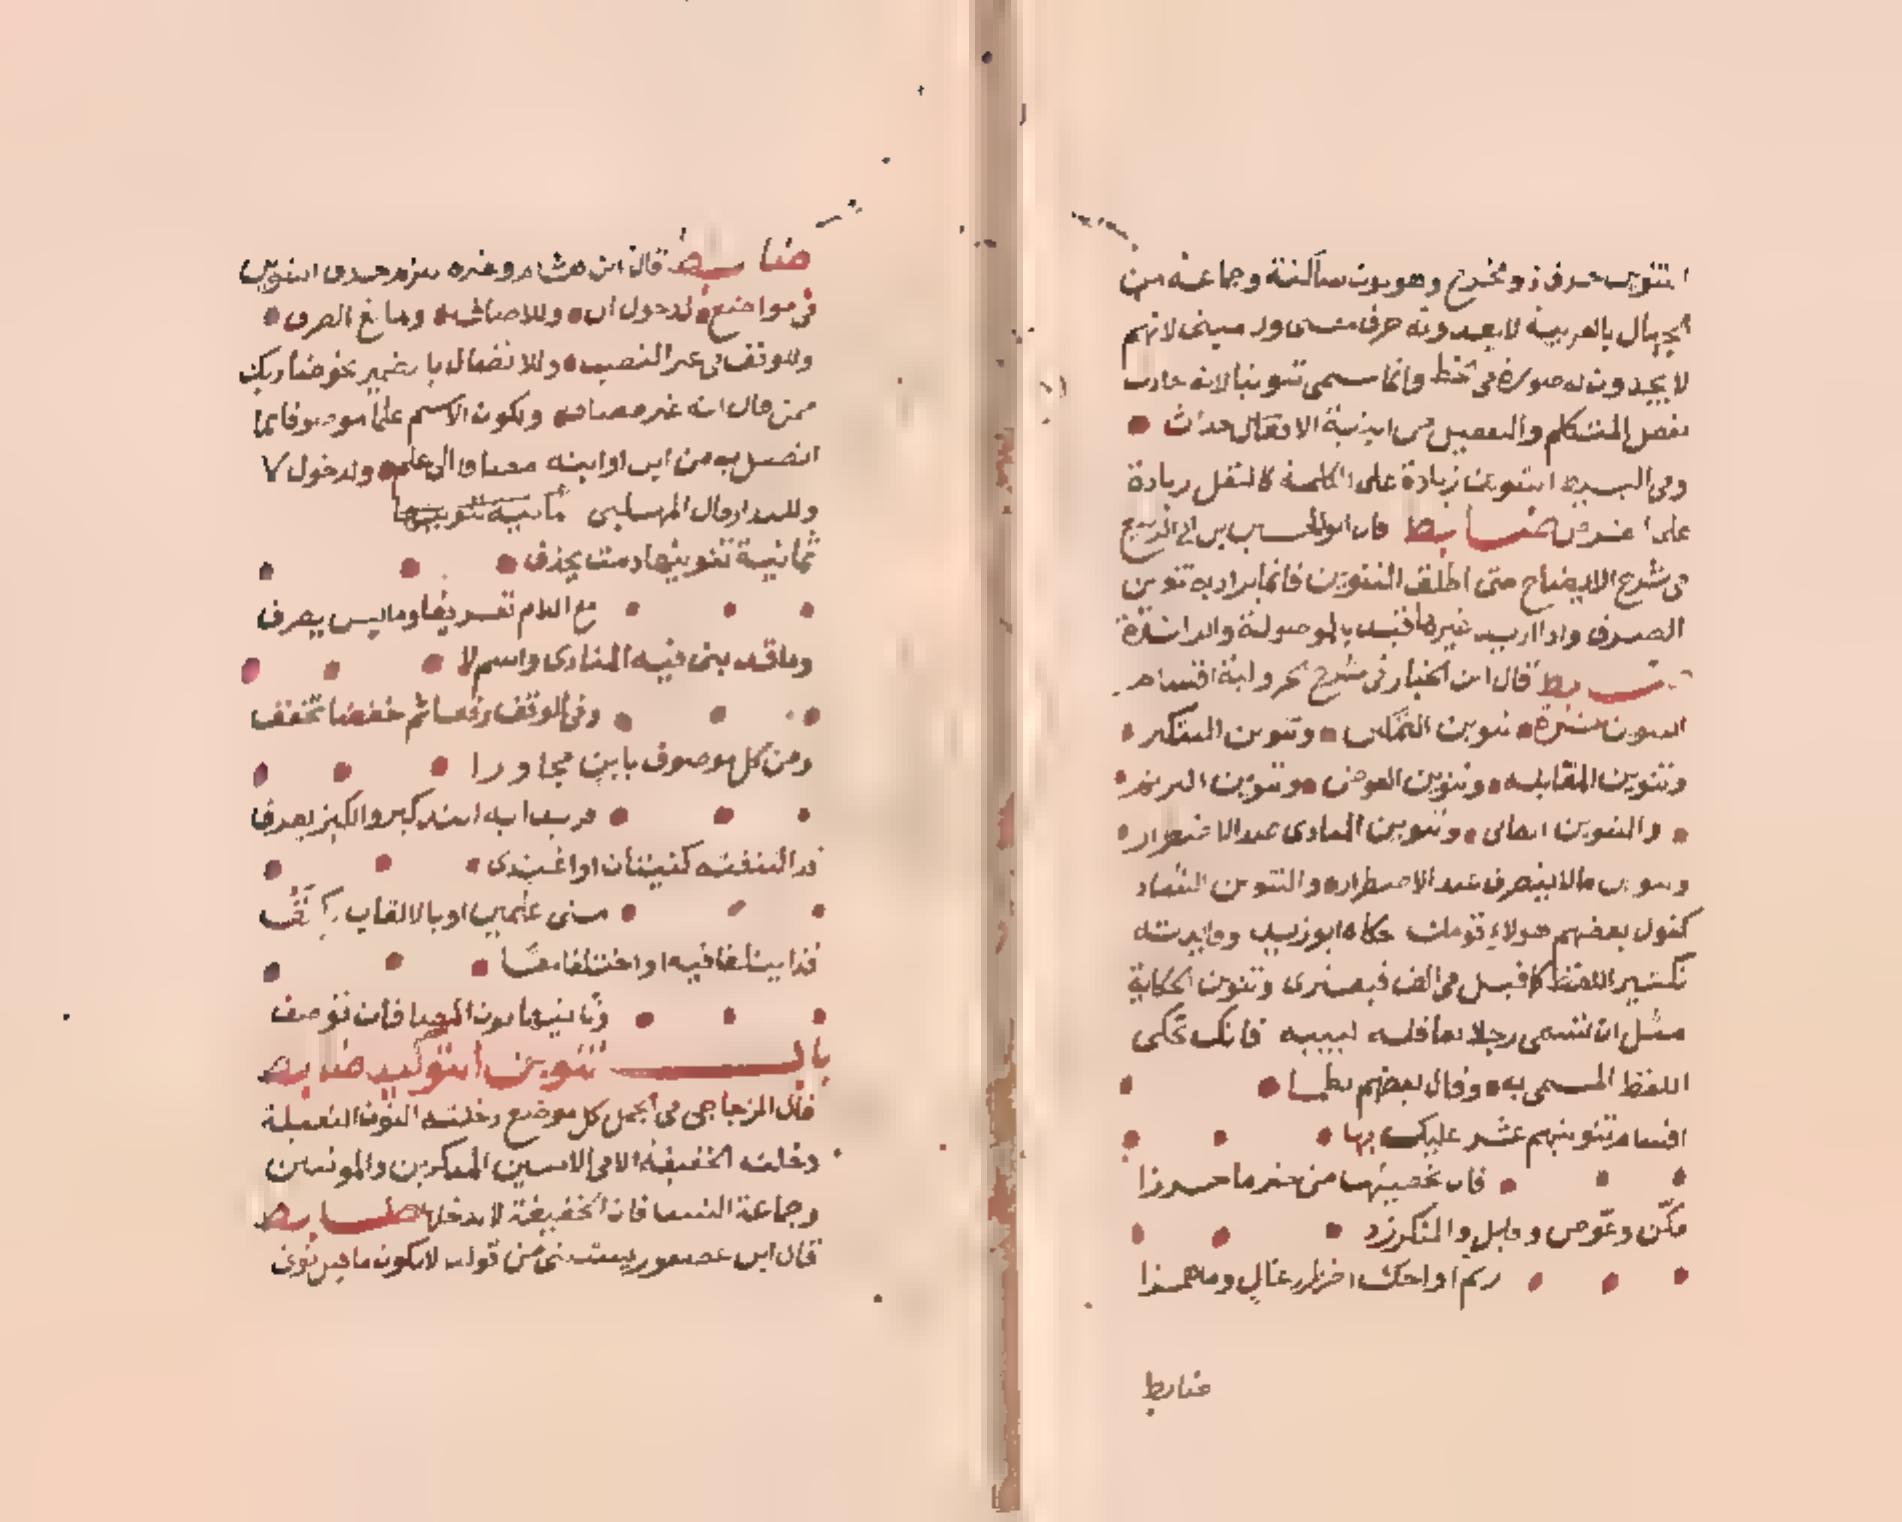 التنوين حرف ذو مخرج وهو نون ساكنة وجماعة من
الجهال بالعربية لا يعدونه حرف معنى ولا مبنى لانهم
لا يجدون له صورة في الخط وانما سمى تنوينا لانه حادث
بفعل المتكلم والتفعيل من ابنية الافعال احداث
وفي البسيط التنوين زيادة على الكلمة كالنفل زيادة
على الفرض ضابط قال ابو الحسين بن ابي الربيع
في شرح الايضاح متى اطلق التنوين فانما يراد به تنوين
الصرف واذا اريد غيره قيد
ضابط قال ابن الخباز في شرح الجزولية اقسام
التنوين عشرة تنوين التمكين وتنوين التنكير
وتنوين المقابلة وتنوين العوض وتنوين الترنم
والتنوين الغالي وتنوين المنادى عند الاضطرار
وتنوين ما لا ينصرف عند الاضطرار والتنوين الشاذ
كقول بعضهم هولاء قومك حكاه ابو زيد وفايدته
تكثير اللفظ كما قيل في الف قبعثرى وتنوين الحكاية
مثل ان تسمى رجلا بعاقلة لبيبة فانك تحكى
اللفظ المسمى به وقال بعضهم نظما
اقسام تنوينهم عشر عليك بها
فان تحصيلها من خير ما حرزا
مكن وعوض وقابل والمنكر زد
رنم او احك اضطرر غال وما همزا
ضابط
ضابط قال ابن هشام وغيره يلزم حذف التنوين
في مواضع لدخول ال وللاضافة ومانع الصرف
وللوقف في غير النصب وللاتصال بالضمير نحو ضاربك
فمن قال انه غير مضاف ولكون الاسم علما موصوفا بما
اتصل به من ابن او ابنة مضافا الى علم ولدخول لا
وللنداء وقال المهلبي
ثمانية تنوينها دمت يحذف
مع اللام تعريفا وما ليس يصرف
وما قد بنى فيه المنادى واسم لا
وفي الوقف رفعا ثم خفضا تخفف
ومن كل موصوف بابن مجاورا
قد اكتنفته كنيتان او اغتدى
باب تنوين التوكيد ضابط
قال الزجاجي في الجمل كل موضع دخلته النون الثقيلة
دخلته الخفيفة الا في الاثنين المذكرين والمونثين
وجماعة النسا فان الخفيفة لا تدخلها ضابط
قال ابن عصفور يستثنى من قولنا لا يكون ما قبل نونى